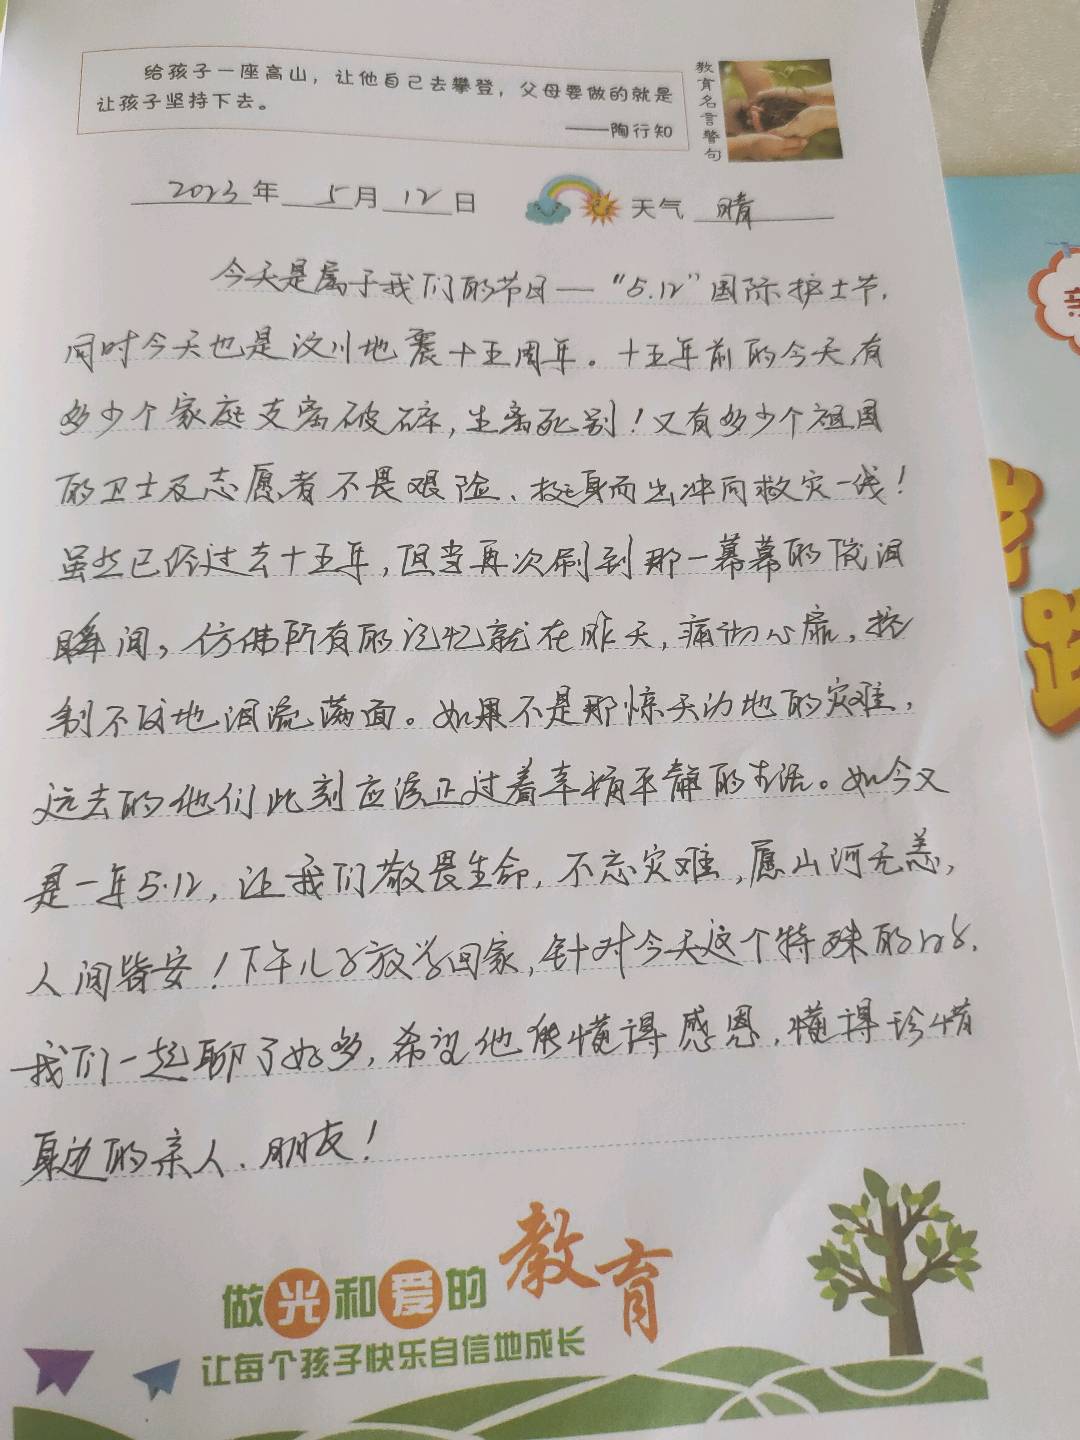 给孩子一座高山，让他自己去攀登，父母要做的就是
让孩子坚持下去。
——陶行知
教育名言警句
2023年 5月 12日
天气 晴
今天是属于我们的节日—“5.12”国际护士节，
同时今天也是汶川地震十五周年。十五年前的今天，有
多少个家庭支离破碎，生离死别！又有多少个祖国
的卫士及志愿者不畏艰险、挺身而出冲向救灾一线！
虽然已经过去十五年，但当再次刷到那一幕幕的催泪
瞬间，仿佛所有的记忆就在昨天，痛彻心扉，控
制不住地泪流满面。如果不是那惊天动地的灾难，
远去的他们此刻应该正过着幸福平静的生活。如今又
是一年5.12，让我们敬畏生命，不忘灾难，愿山河无恙，
人间皆安！下午儿子放学回家，针对今天这个特殊的日子，
我们一起聊了好多，希望他能懂得感恩，懂得珍惜
身边的亲人、朋友！
做光和爱的教育
让每个孩子快乐自信地成长